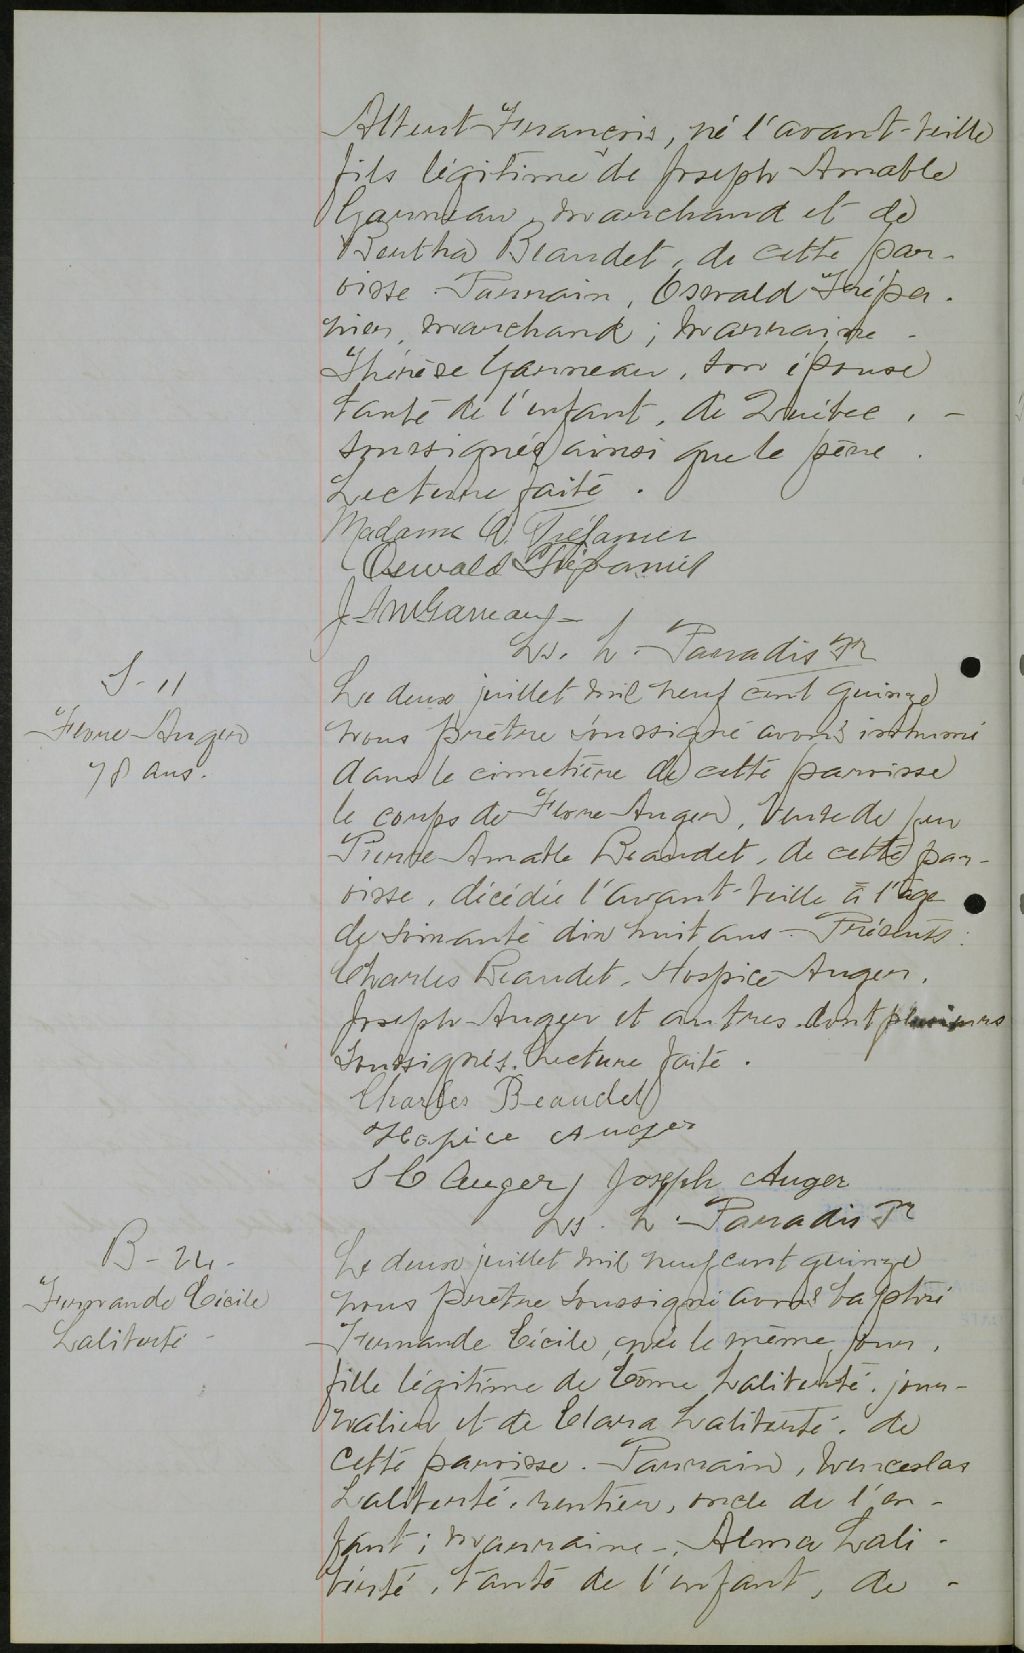 Albert François, né l'avant-veille
fils légitime de Joseph Amable
Garneau, marchand et de
Bertha Beaudet, de cette par-
oisse. Parrain, Oswald Trépa-
nier, marchand; marraine -
Thérèse Garneau, son épouse
tante de l'enfant, de Québec, -
soussignés ainsi que le père.
Lecture faite.
Madame O. Trépanier
Oswald Trépanier
J. Am Garneau -
Ls. L. Paradis Ptr
S - 11
Flore Auger
78 ans.
Le deux juillet mil neuf cent quinze
nous prêtre soussigné avons inhumé
dans le cimetière de cette paroisse
le corps de Flore Auger, veuve de feu
Pierre Amable Beaudet, de cette par-
oisse, décédée l'avant-veille à l'âge
de soixante dix huit ans - Présents:
Charles Beaudet, Hospice Auger,
Joseph Auger et autres dont plusieurs
soussignés. Lecture faite.
Charles Beaudet
Hospice Auger
S C Auger, Joseph Auger
Ls. L. Paradis Ptr
B - 24 -
Fernande Cécile
Laliberté -
Le deux juillet mil neuf cent quinze
nous prêtre soussigné avons baptisé
Fernande Cécile, née le même jour,
fille légitime de Côme Laliberté, jour-
nalier et de Clara Laliberté, de
cette paroisse. Parrain, Wenceslas
Laliberté, rentier, oncle de l'en-
fant; marraine -, Alma Lali-
berté, tante de l'enfant, de -